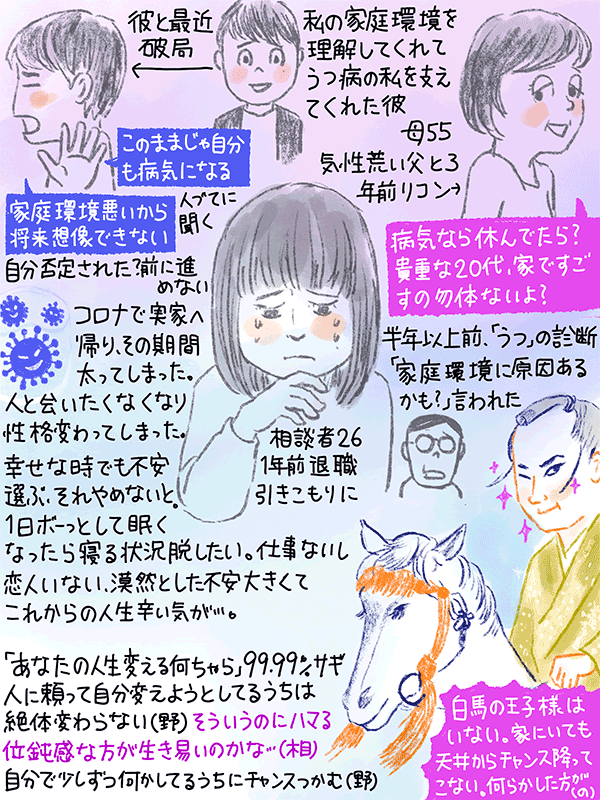 彼と最近
破局
私の家庭環境を
理解してくれて
うつ病の私を支え
てくれた彼
母55
気性荒い父と3
年前リコン→
このままじゃ自分
も病気になる
家庭環境悪いから
将来想像できない
人づてに
聞く
病気なら休んでたら?
貴重な20代、家ですご
すの勿体ないよ?
自分否定された?前に進
めない
コロナで実家へ
帰り、その期間
太ってしまった。
人と会いたくなくなり
性格変わってしまった。
半年以上前、「うつ」の診断
「家庭環境に原因ある
かも?」言われた
相談者26
1年前退職
引きこもりに
幸せな時でも不安
選ぶ、それやめないと。
1日ボーっとして眠く
なったら寝る状況脱したい。仕事ないし
恋人いない、漠然とした不安大きくて
これからの人生辛い気が…。
「あなたの人生変える何ちゃら」99.99%サギ
人に頼って自分変えようとしてるうちは
絶体変わらない(野)そういうのにハマる
位鈍感な方が生き易いのかな…(相)
自分で少しずつ何かしてるうちにチャンスつかむ(野)
白馬の王子様は
いない。家にいても
天井からチャンス降って
こない。何らかした方が(の)